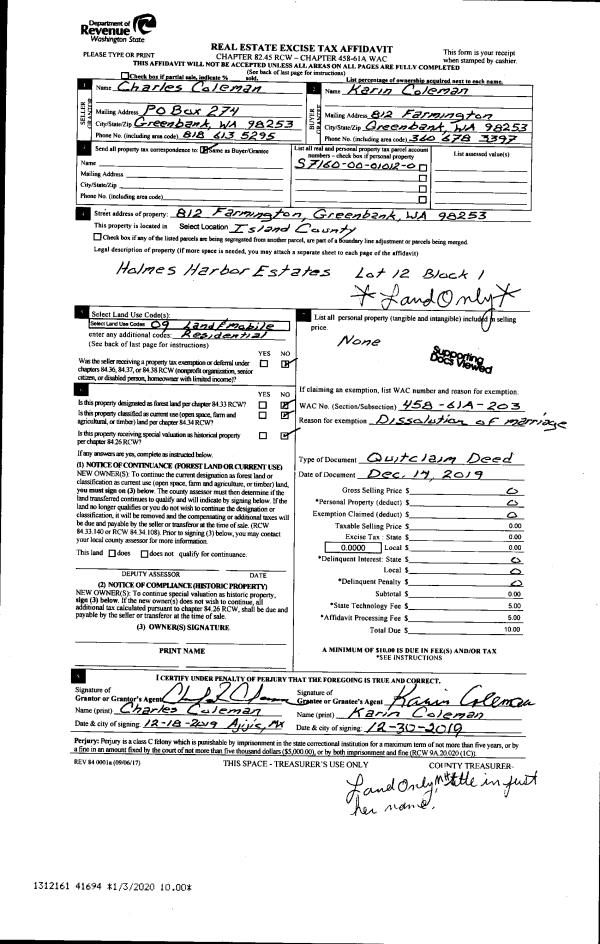 Department of
Revenue
Washington State
PLEASE TYPE OR PRINT
REAL ESTATE EXCISE TAX AFFIDAVIT
CHAPTER 82.45 RCW – CHAPTER 458-61A WAC
This form is your receipt
when stamped by cashier.
THIS AFFIDAVIT WILL NOT BE ACCEPTED UNLESS ALL AREAS ON ALL PAGES ARE FULLY COMPLETED
(See back of last page for instructions)
Check box if partial sale, indicate % sold.
List percentage of ownership acquired next to each name.
1
SELLER
GRANTOR
Name Charles Coleman
Mailing Address PO Box 274
City/State/Zip Greenbank, WA 98253
Phone No. (including area code) 818 613 5295
2
BUYER
GRANTEE
Name Karin Coleman
Mailing Address 812 Farmington
City/State/Zip Greenbank, WA 98253
Phone No. (including area code) 360 678 3397
Send all property tax correspondence to: Same as Buyer/Grantee
Name
Mailing Address
City/State/Zip
Phone No. (including area code)
List all real and personal property tax parcel account
numbers – check box if personal property
S7160-00-01012-0
List assessed value(s)
4
Street address of property: 812 Farmington, Greenbank, WA 98253
This property is located in Select Location Island County
Check box if any of the listed parcels are being segregated from another parcel, are part of a boundary line adjustment or parcels being merged.
Legal description of property (if more space is needed, you may attach a separate sheet to each page of the affidavit)
Holmes Harbor Estates Lot 12 Block 1
*Land Only*
5
Select Land Use Code(s):
Select Land Use Codes 09 Land/mobile
enter any additional codes: Residential
(See back of last page for instructions)
YES NO
Was the seller receiving a property tax exemption or deferral under
chapters 84.36, 84.37, or 84.38 RCW (nonprofit organization, senior
citizen, or disabled person, homeowner with limited income)?
YES NO
Is this property designated as forest land per chapter 84.33 RCW?
Is this property classified as current use (open space, farm and
agricultural, or timber) land per chapter 84.34 RCW?
Is this property receiving special valuation as historical property
per chapter 84.26 RCW?
If any answers are yes, complete as instructed below.
(1) NOTICE OF CONTINUANCE (FOREST LAND OR CURRENT USE)
NEW OWNER(S): To continue the current designation as forest land or
classification as current use (open space, farm and agriculture, or timber) land,
you must sign on (3) below. The county assessor must then determine if the
land transferred continues to qualify and will indicate by signing below. If the
land no longer qualifies or you do not wish to continue the designation or
classification, it will be removed and the compensating or additional taxes will
be due and payable by the seller or transferor at the time of sale. (RCW
84.33.140 or RCW 84.34.108). Prior to signing (3) below, you may contact
your local county assessor for more information.
This land does does not qualify for continuance.
DEPUTY ASSESSOR DATE
(2) NOTICE OF COMPLIANCE (HISTORIC PROPERTY)
NEW OWNER(S): To continue special valuation as historic property,
sign (3) below. If the new owner(s) does not wish to continue, all
additional tax calculated pursuant to chapter 84.26 RCW, shall be due and
payable by the seller or transferor at the time of sale.
(3) OWNER(S) SIGNATURE
PRINT NAME
7
List all personal property (tangible and intangible) included in selling
price.
None
Supporting
Docs Viewed
If claiming an exemption, list WAC number and reason for exemption.
WAC No. (Section/Subsection) 458-61A-203
Reason for exemption Dissolution of marriage
Type of Document Quitclaim Deed
Date of Document Dec. 17, 2019
Gross Selling Price $ 0
*Personal Property (deduct) $ 0
Exemption Claimed (deduct) $ 0
Taxable Selling Price $ 0.00
Excise Tax : State $ 0.00
0.0000 Local $ 0.00
*Delinquent Interest: State $ 0
Local $ 0
*Delinquent Penalty $ 0
Subtotal $ 0.00
*State Technology Fee $ 5.00
*Affidavit Processing Fee $ 5.00
Total Due $ 10.00
A MINIMUM OF $10.00 IS DUE IN FEE(S) AND/OR TAX
*SEE INSTRUCTIONS
8
I CERTIFY UNDER PENALTY OF PERJURY THAT THE FOREGOING IS TRUE AND CORRECT.
Signature of
Grantor or Grantor's Agent
Name (print) Charles Coleman
Date & city of signing: 12-18-2019 Ajijic, MX
Signature of
Grantee or Grantee's Agent Karin Coleman
Name (print) Karin Coleman
Date & city of signing: 12-30-2019
Perjury: Perjury is a class C felony which is punishable by imprisonment in the state correctional institution for a maximum term of not more than five years, or by
a fine in an amount fixed by the court of not more than five thousand dollars ($5,000.00), or by both imprisonment and fine (RCW 9A.20.020 (1C)).
REV 84 0001a (09/06/17)
THIS SPACE - TREASURER'S USE ONLY
COUNTY TREASURER
Land Only, title in just
her name.
1312161 41694 *1/3/2020 10.00*